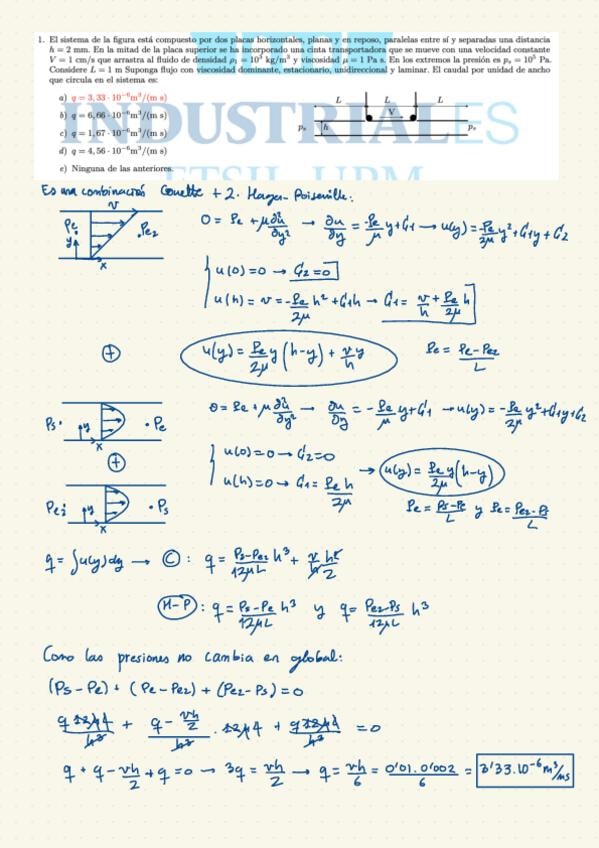 1. El sistema de la figura está compuesto por dos placas horizontales, planas y en reposo, paralelas entre sí y separadas una distancia
h = 2 mm. En la mitad de la placa superior se ha incorporado una cinta transportadora que se mueve con una velocidad constante
V = 1 cm/s que arrastra al fluido de densidad ρ₁ = 10³ kg/m³ y viscosidad μ = 1 Pa s. En los extremos la presión es pₛ = 10⁵ Pa.
Considere L = 1 m Suponga flujo con viscosidad dominante, estacionario, unidireccional y laminar. El caudal por unidad de ancho
que circula en el sistema es:
a) q = 3,33 · 10⁻⁶m³/(m s)
b) q = 6,66 · 10⁻⁶m³/(m s)
c) q = 1,67 · 10⁻⁶m³/(m s)
d) q = 4,56 · 10⁻⁶m³/(m s)
e) Ninguna de las anteriores.
L L L
V
pₛ h pₛ
INDUSTRIALES
ETSII UPM
Es una combinación Couette + 2. Hagen-Poiseuille:
v
Pe y x Pe2
0 = Pe + μ ∂²u/∂y² → ∂u/∂y = -Pe/μ y + C1 → u(y) = -Pe/2μ y² + C1y + C2
u(0) = 0 → C2 = 0
u(h) = v = -Pe/2μ h² + C1h → C1 = v/h + Pe/2μ h
+ u(y) = Pe/2μ y (h-y) + v/h y Pe = Pe - Pe2/L
Ps· y x · Pe
0 = Pe + μ ∂²u/∂y² → ∂u/∂y = -Pe/μ y + C1 → u(y) = -Pe/2μ y² + C1y + C2
+
u(0) = 0 → C2 = 0
u(h) = 0 → C1 = Pe h/2μ → u(y) = Pe/2μ y (h-y)
Pe2 y x · Ps
Pe = Ps-Pe/L y Pe = Pe2-Ps/L
q = ∫u(y)dy → C : q = Ps-Pe2/12μL h³ + v/h h²/2
H-P : q = Ps-Pe/12μL h³ y q = Pe2-Ps/12μL h³
Como las presiones no cambia en global:
(Ps - Pe) + (Pe - Pe2) + (Pe2 - Ps) = 0
q 12μL/h³ + q - vh/2 /h³ · 12μL + q 12μL/h³ = 0
q + q - vh/2 + q = 0 → 3q = vh/2 → q = vh/6 = 0'01.0'002/6 = 3'33.10⁻⁶ m³/ms